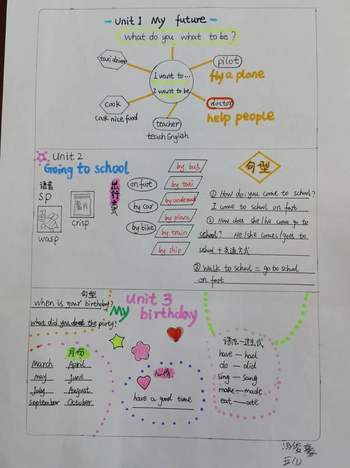 Unit 1 My future
what do you what to be?
I want to...
I want to be
taxi driver
pilot
fly a plane
cook
cook nice food
doctor
help people
teacher
teach English
Unit 2
Going to school
语音
sp
wasp
crisp
出行方式
on foot
by car
by bike
by bus
by taxi
by underground
by plane
by train
by ship
句型
① How do you come to school?
I come to school on foot
② How does she/he come go to
school? He/she comes/goes to
school + 交通方式
③ Walk to school = go to school
on foot
Unit 3
My birthday
句型
when is your birthday?
what did you do at the party?
月份
March April
may June
July August
September October
have a good time
语法 一过去式
have — had
do — did
sing — sang
make — made
eat — ate